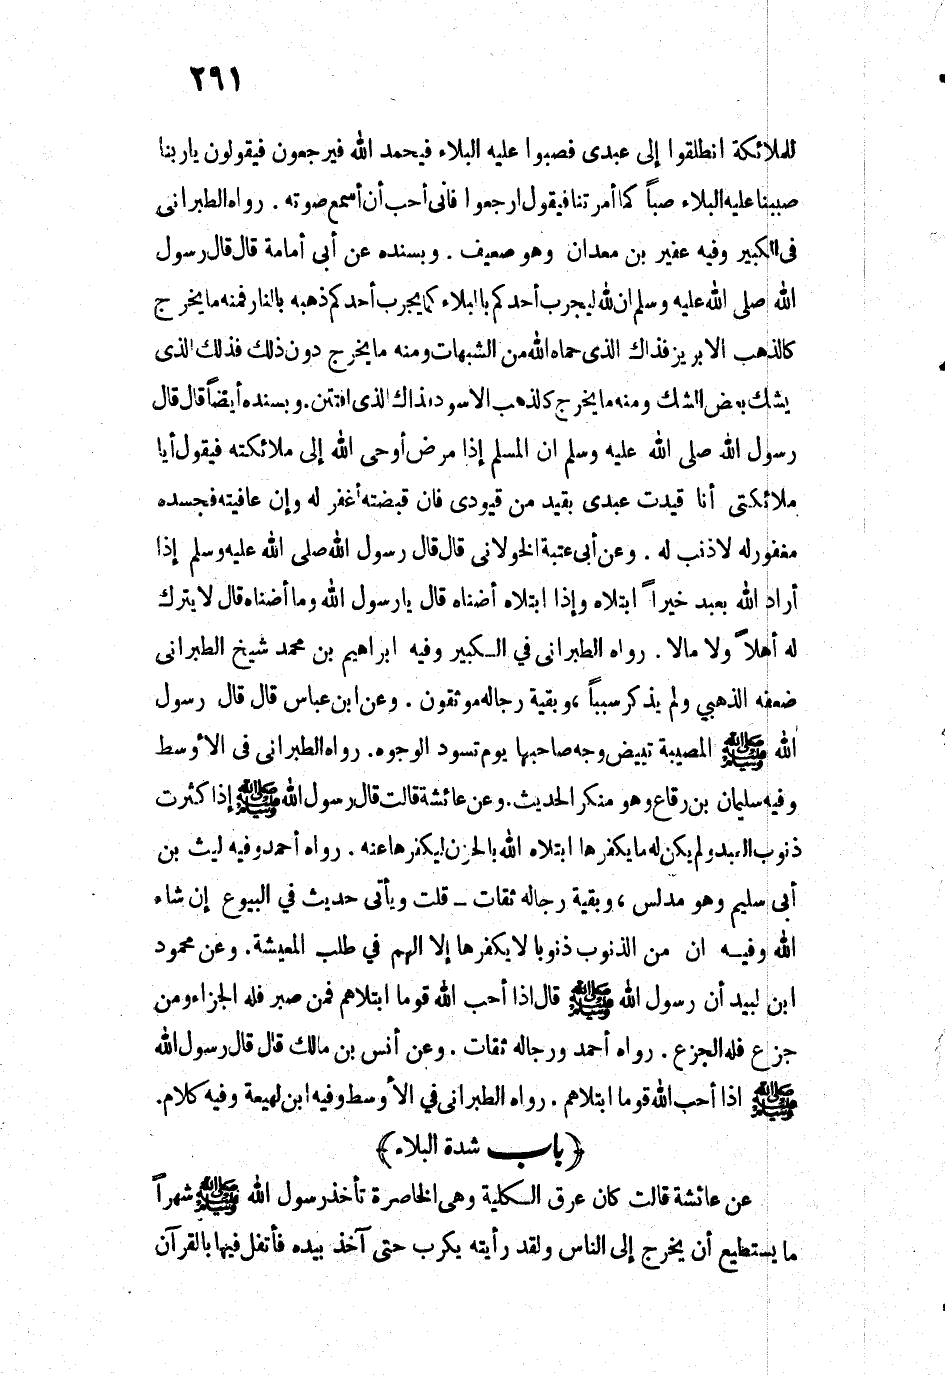 ٢٩١
للملائكة انطلقوا إلى عبدى فصبوا عليه البلاء فيحمد الله فيرجعون فيقولون ياربنا
صببنا عليه البلاء صباً كما أمرتنا فيقول ارجعوا فانى أحب أن أسمع صوته . رواه الطبرانى
فى الكبير وفيه عفير بن معدان وهو صعيف . وبسنده عن أبي أمامة قال قال رسول
الله صلى الله عليه وسلم ان لله ليجرب أحدكم بالبلاء كما يجرب أحدكم ذهبه بالنار فمنه ما يخرج
كالذهب الابريز فذاك الذى حماه الله من الشبهات ومنه ما يخرج دون ذلك فذلك الذى
يشك بعض الشك ومنه ما يخرج كالذهب الاسود فذاك الذى افتتن . وبسنده أيضاً قال قال
رسول الله صلى الله عليه وسلم ان المسلم إذا مرض أوحى الله إلى ملائكته فيقول أيا
ملائكتى أنا قيدت عبدى بقيد من قيودى فان قبضته أغفر له وإن عافيته فجسده
مغفور له لا ذنب له . وعن أبى عتبة الخولانى قال قال رسول الله صلى الله عليه وسلم إذا
أراد الله بعبد خيراً ابتلاه وإذا ابتلاه أضناه قال يارسول الله وما أضناه قال لا يترك
له أهلاً ولا مالا . رواه الطبرانى في الكبير وفيه ابراهيم بن محمد شيخ الطبرانى
ضعفه الذهبي ولم يذكر سبباً ، وبقية رجاله موثقون . وعن ابن عباس قال قال رسول
الله ﷺ المصيبة تبيض وجه صاحبها يوم تسود الوجوه . رواه الطبرانى فى الأوسط
وفيه سليمان بن رقاع وهو منكر الحديث . وعن عائشة قالت قال رسول الله ﷺ إذا كثرت
ذنوب العبد ولم يكن له ما يكفرها ابتلاه الله بالحزن ليكفرها عنه . رواه أحمد وفيه ليث بن
أبى سليم وهو مدلس ، وبقية رجاله ثقات - قلت ويأتى حديث في البيوع إن شاء
الله وفيه ان من الذنوب ذنوبا لا يكفرها إلا الهم في طلب المعيشة . وعن محمود
ابن لبيد أن رسول الله ﷺ قال اذا أحب الله قوما ابتلاهم فمن صبر فله الجزاء ومن
جزع فله الجزع . رواه أحمد ورجاله ثقات . وعن أنس بن مالك قال قال رسول الله
ﷺ اذا أحب الله قوما ابتلاهم . رواه الطبرانى في الأوسط وفيه ابن لهيعة وفيه كلام .
﴿ باب شدة البلاء ﴾
عن عائشة قالت كان عرق الكلية وهى الخاصرة تأخذ رسول الله ﷺ شهراً
ما يستطيع أن يخرج إلى الناس ولقد رأيته يكرب حتى آخذ بيده فأتفل فيها بالقرآن